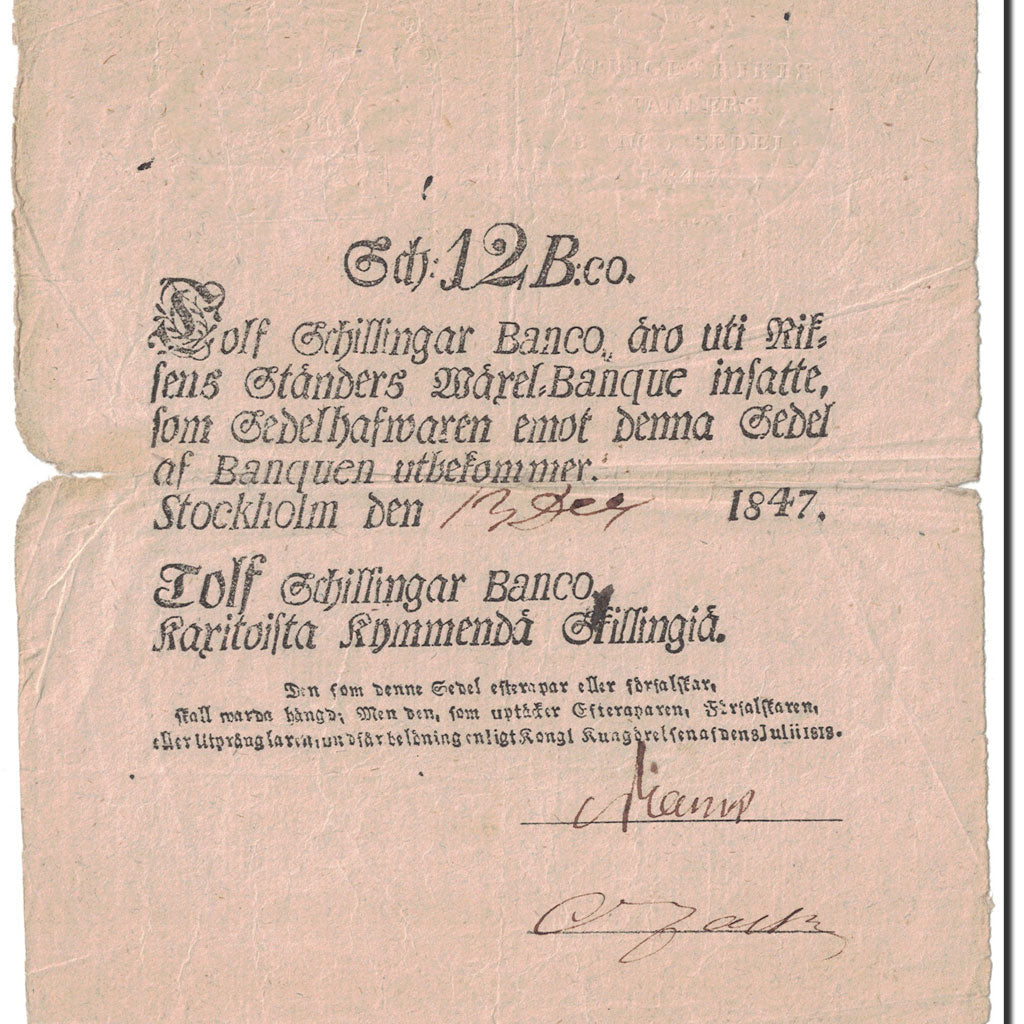 Sch: 12 B:co.
Tolf Schillingar Banco, äro uti Rik-
sens Ständers Wäxel-Banque insatte,
som Sedelhafwaren emot denna Sedel
af Banquen utbekommer.
Stockholm den 13 Dec 1847.
Tolf Schillingar Banco,
Kaxitoista Kymmendä Skillingiä.
Den som denne Sedel efterapar eller förfalskar,
skall warda hängd; Men den, som uptäcker Efteraparen, Förfalskaren,
eller Utprånglaren, undfår belöning enligt Kongl Kungörelsen af den 8 Julii 1818.